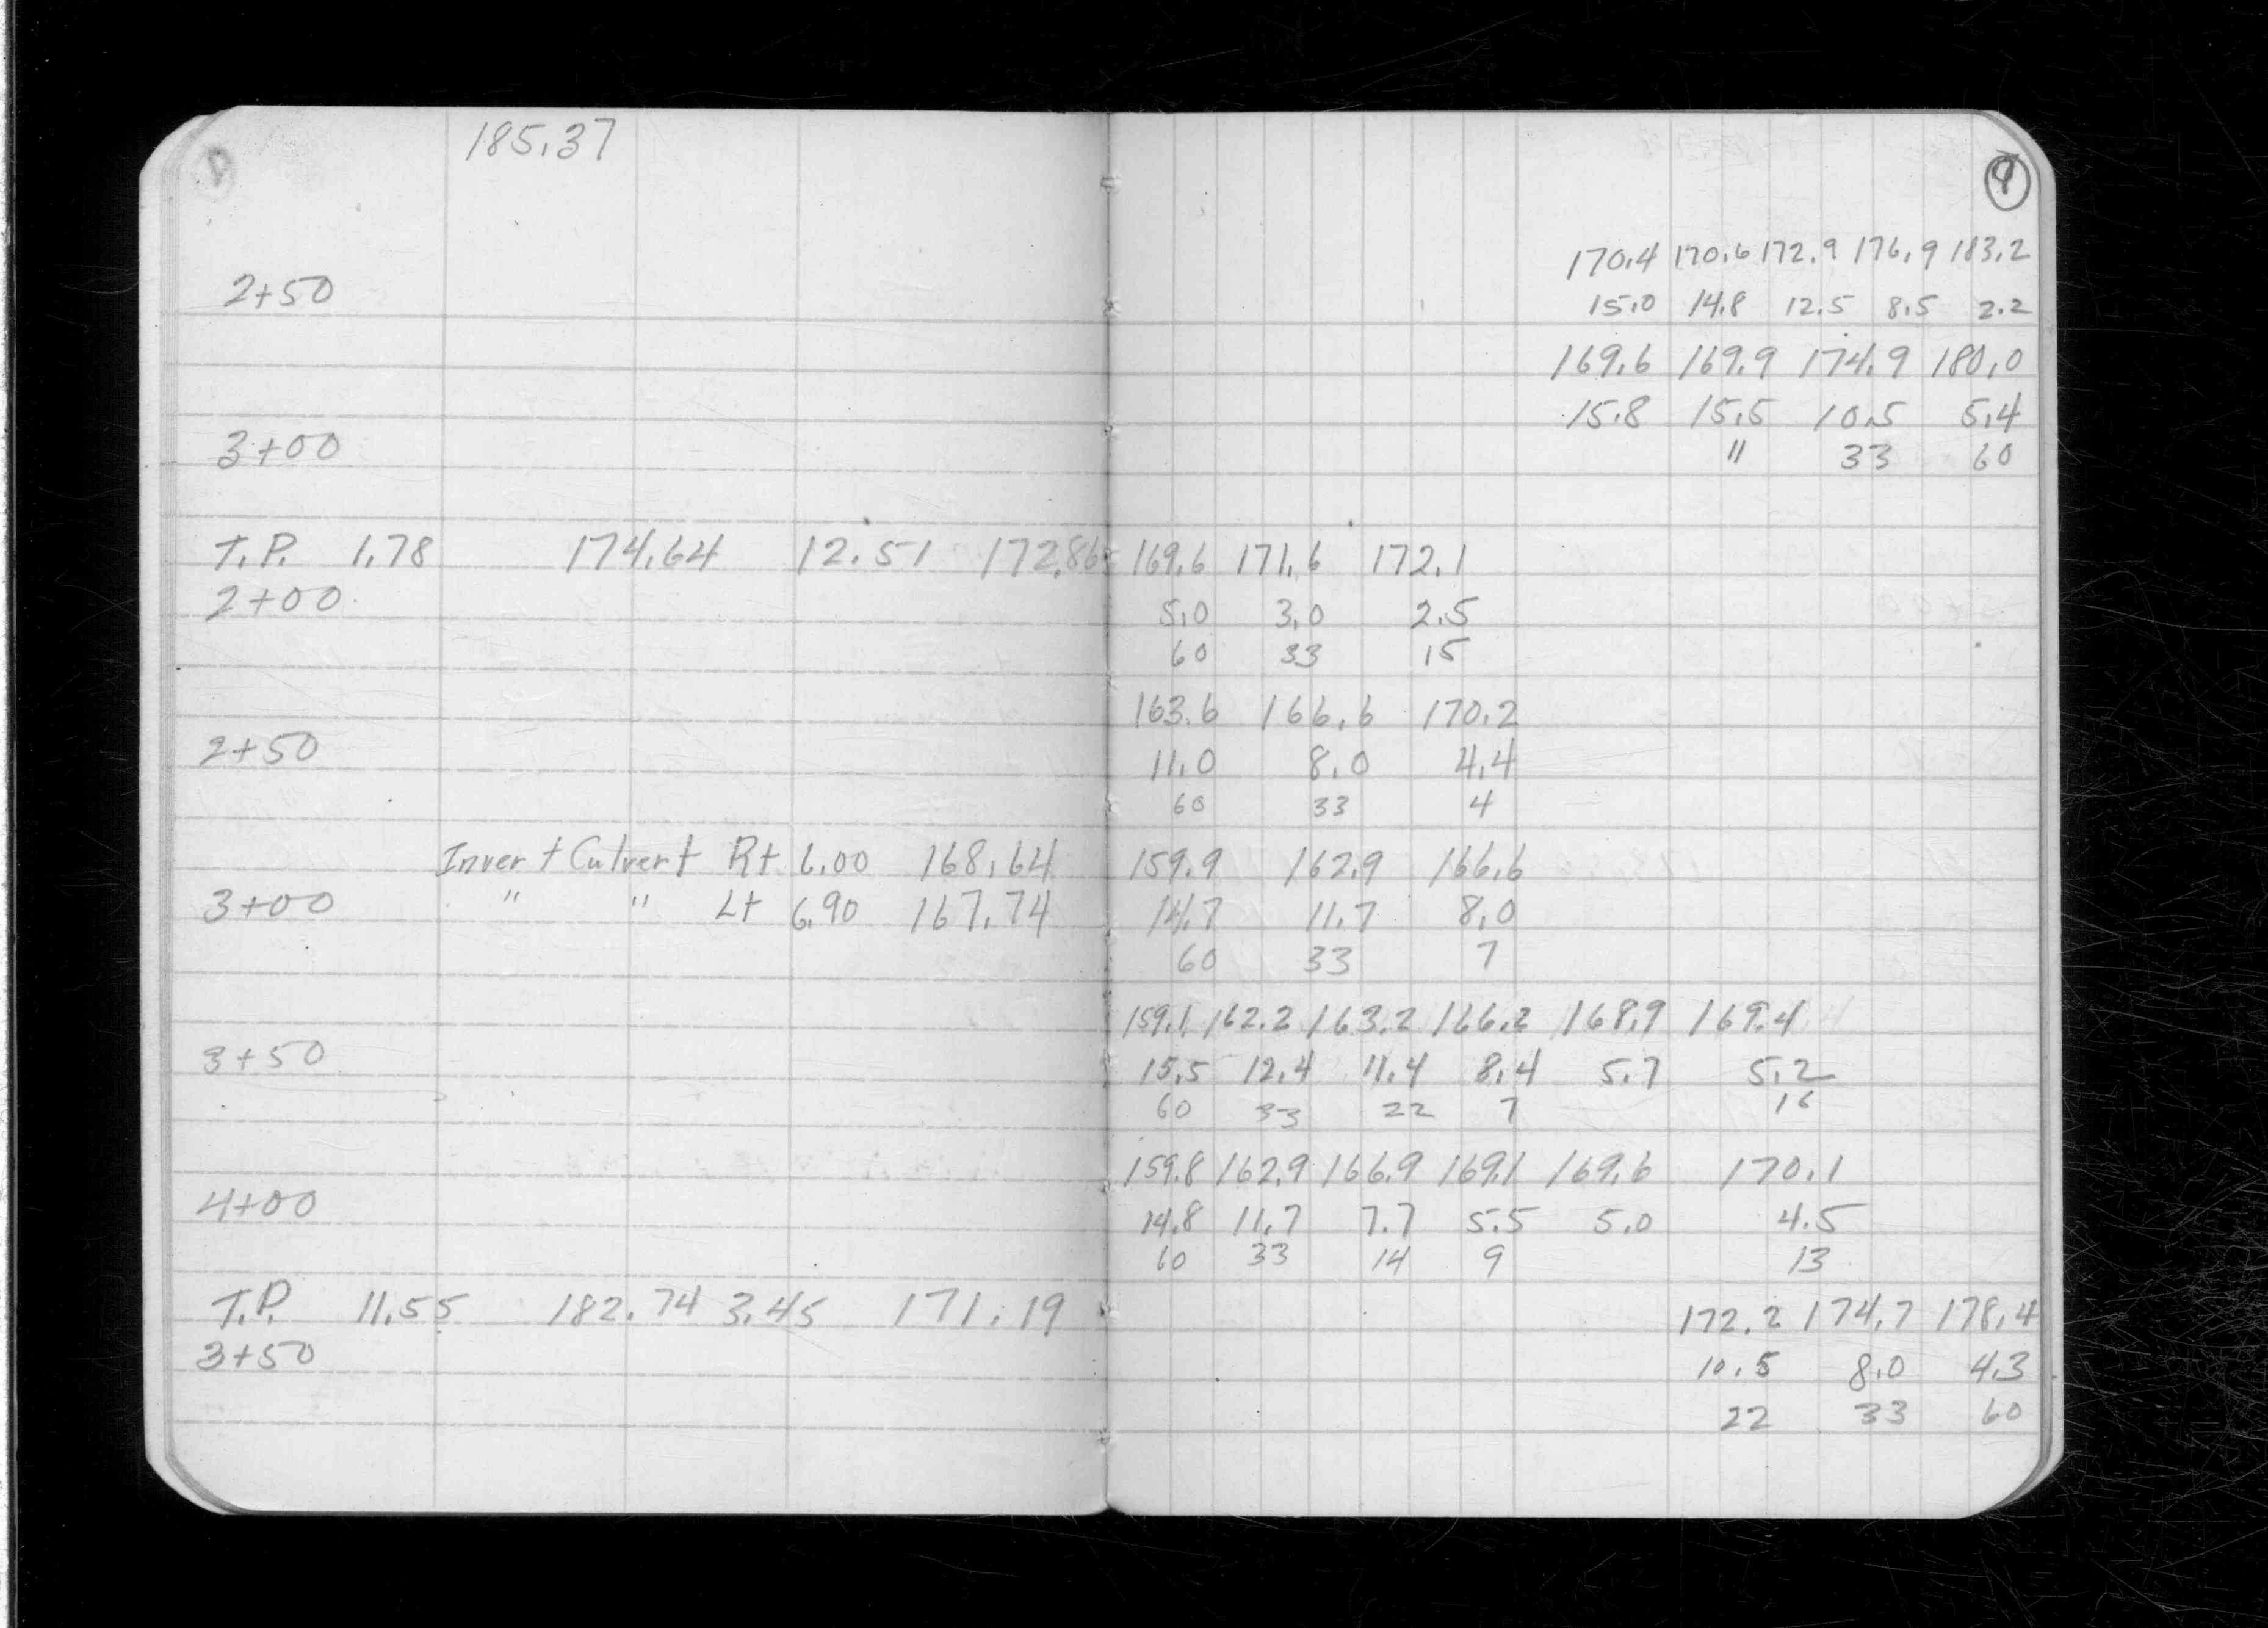 185.37
9
170.4 170.6 172.9 176.9 183.2
2+50 15.0 14.8 12.5 8.5 2.2
169.6 169.9 174.9 180.0
15.8 15.5 10.5 5.4
3+00 11 33 60
T.P. 1.78 174.64 12.51 172.86 169.6 171.6 172.1
2+00 5.0 3.0 2.5
60 33 15
163.6 166.6 170.2
2+50 11.0 8.0 4.4
60 33 4
Invert Culvert Rt 6.00 168.64 159.9 162.9 166.6
3+00 " " Lt 6.90 167.74 14.7 11.7 8.0
60 33 7
159.1 162.2 163.2 166.2 168.9 169.4
3+50 15.5 12.4 11.4 8.4 5.7 5.2
60 33 22 7 16
159.8 162.9 166.9 169.1 169.6 170.1
4+00 14.8 11.7 7.7 5.5 5.0 4.5
60 33 14 9 13
T.P. 11.55 182.74 3.45 171.19 172.2 174.7 178.4
3+50 10.5 8.0 4.3
22 33 60